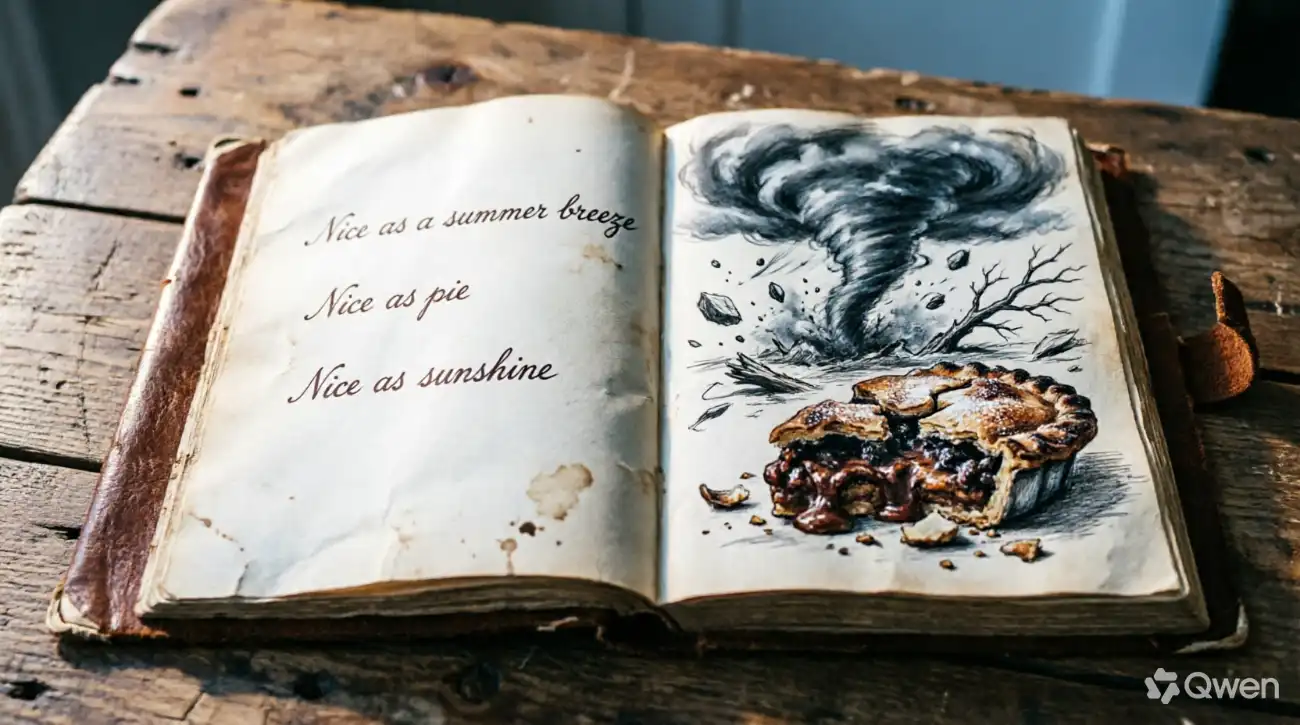 Nice as a summer breeze
Nice as pie
Nice as sunshine
Qwen